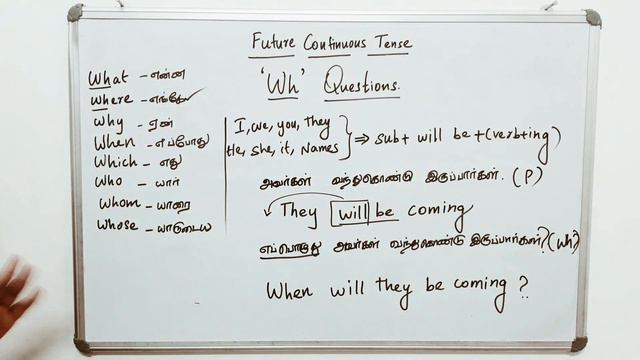 Future Continuous Tense
'Wh' Questions.
What - என்ன
Where - எங்கே
Why - ஏன்
When - எப்போது
Which - எது
Who - யார்
Whom - யாரை
Whose - யாருடைய
I, we, you, They
He, She, it, Names
⇒ sub + will be + (verb+ing)
அவர்கள் வந்துகொண்டு இருப்பார்கள். (P)
They will be coming
எப்பொழுது அவர்கள் வந்துகொண்டு இருப்பார்கள்? (Wh?)
When will they be coming ?